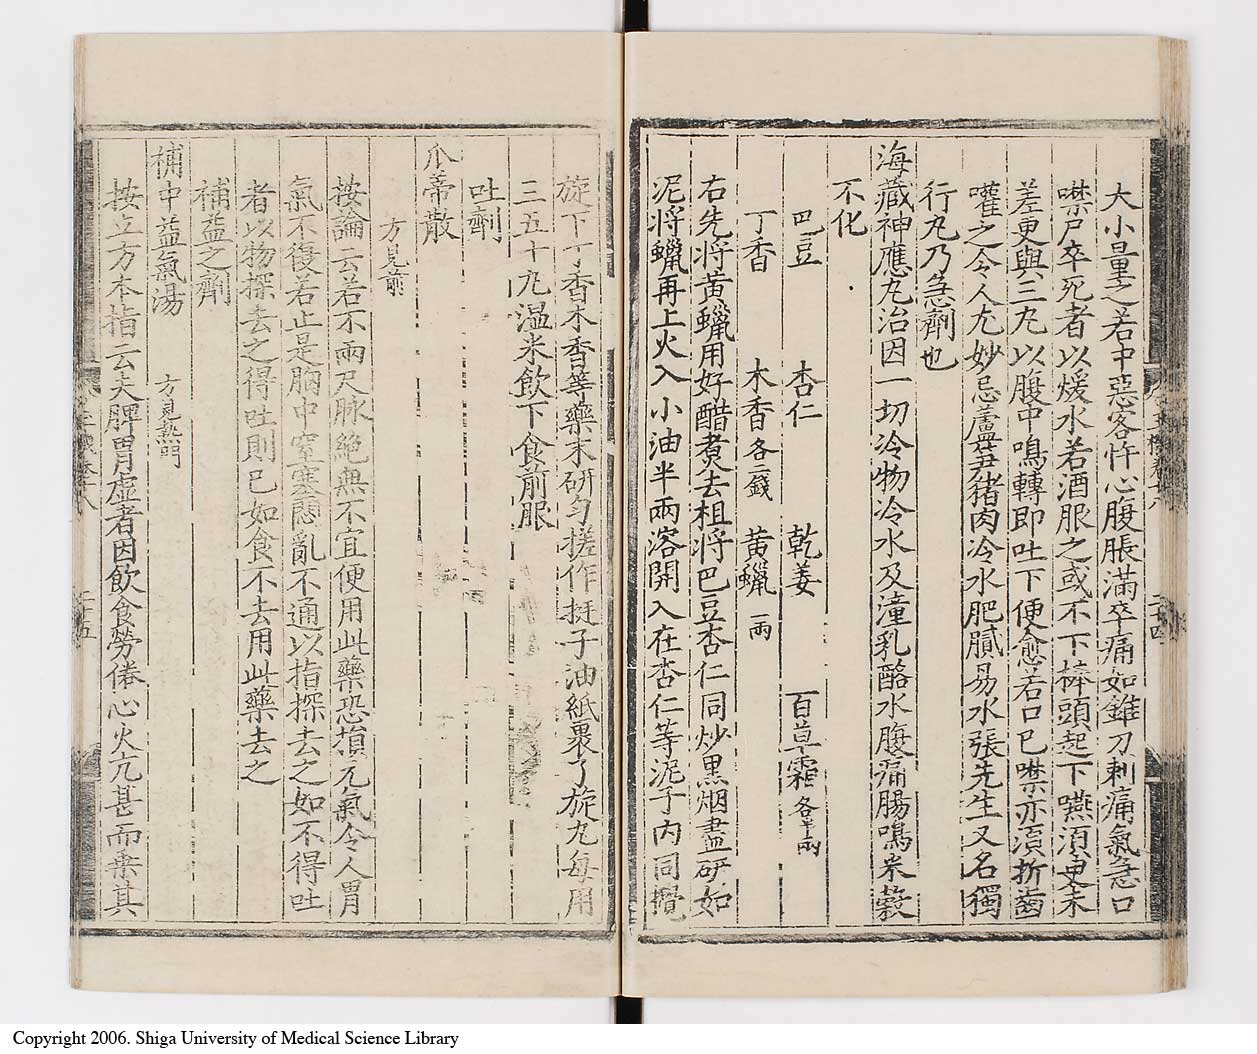 大小量之若中惡客忤心腹脹滿卒痛如錐刀刺痛氣急口
噤尸卒死者以煖水若酒服之或不下捧頭起下嚥須更未
差更與三丸以腹中鳴轉即吐下便愈若口已噤亦須折齒
嚾之令人尤妙忌蘆笋猪肉冷水肥膩易水張先生又名獨
行丸乃急劑也
海藏神應丸治因一切冷物冷水及潼乳酪水腹痛腸鳴米穀
不化
巴豆 杏仁 乾姜 百草霜各半兩
丁香 木香各二錢 黄蠟一兩
右先將黄蠟用好醋煑去柤將巴豆杏仁同炒黒烟盡研如
泥將蠟再上火入小油半兩溶開入在杏仁等泥子内同攪
旋下丁香木香等藥末研匀搓作挺子油紙裹了旋丸每用
三五十丸温米飲下食前服
吐劑
瓜蒂散
方見前
按論云若不兩尺脉絶無不宜便用此藥恐損元氣令人胃
氣不復若止是胸中窒塞悶亂不通以指探去之如不得吐
者以物探去之得吐則已如食不去用此藥去之
補益之劑
補中益氣湯 方見熱門
按立方本指云夫脾胃虚者因飲食勞倦心火亢甚而乗其
二十四
二十五
Copyright 2006. Shiga University of Medical Science Library